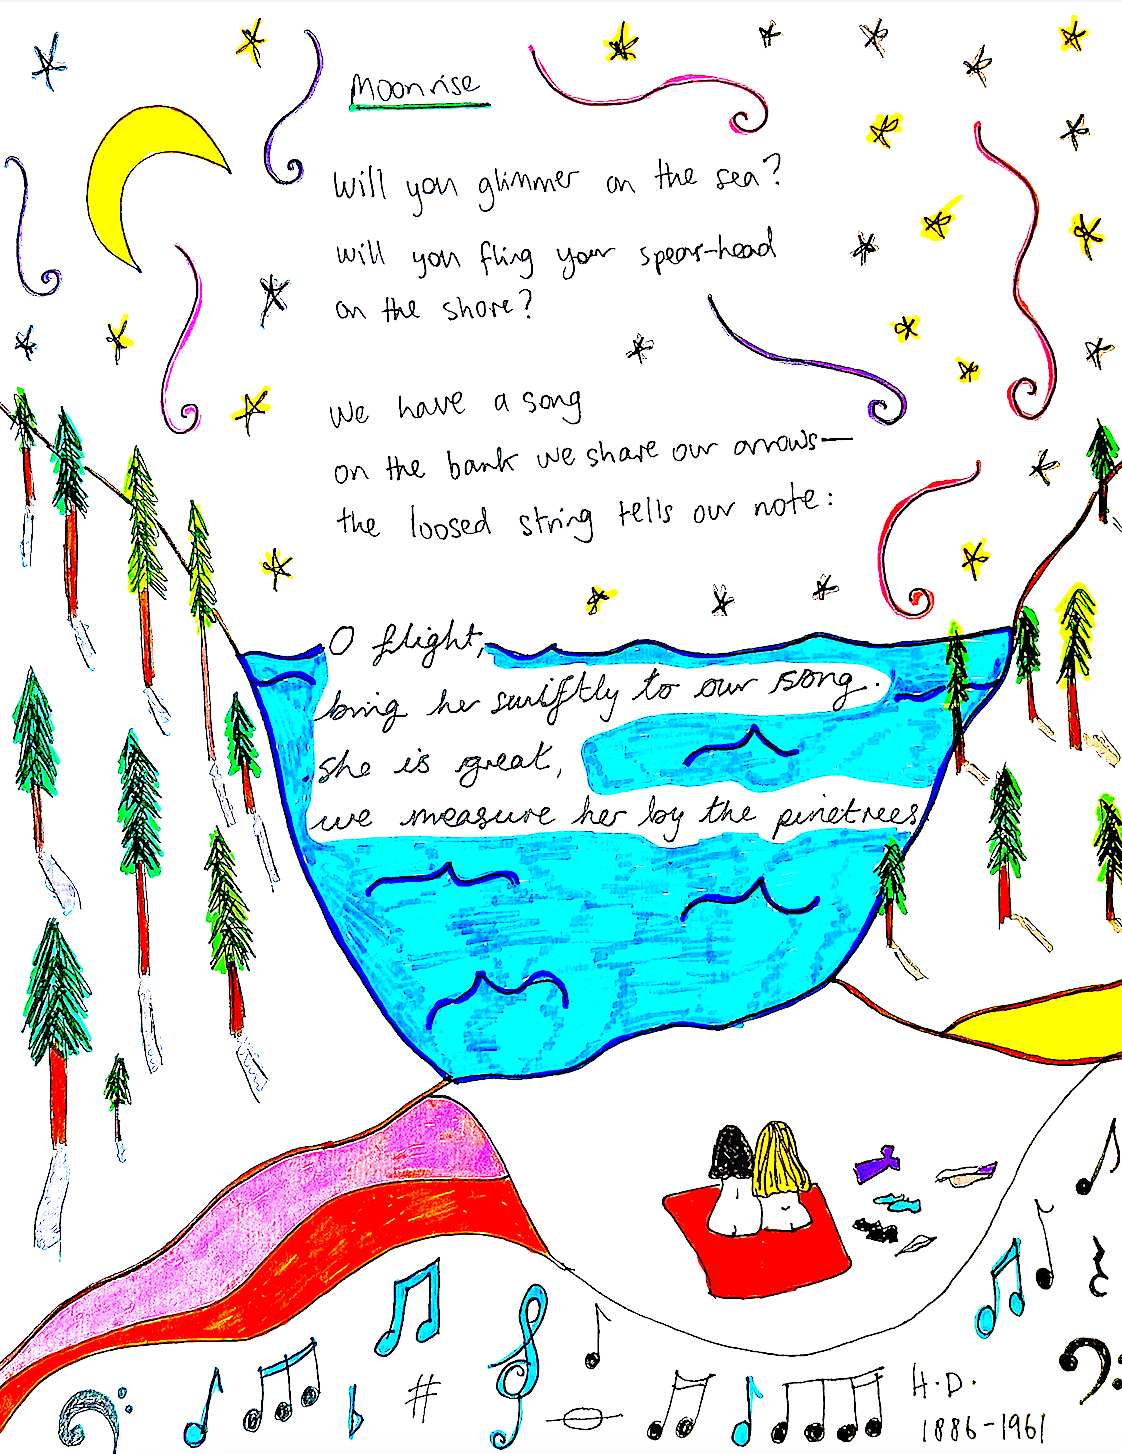 Moonrise
Will you glimmer on the sea?
Will you fling your spear-head
on the shore?
We have a song
on the bank we share our arrows—
the loosed string tells our note:
O flight,
bring her swiftly to our song.
She is great,
we measure her by the pinetrees.
H.D.
1886-1961